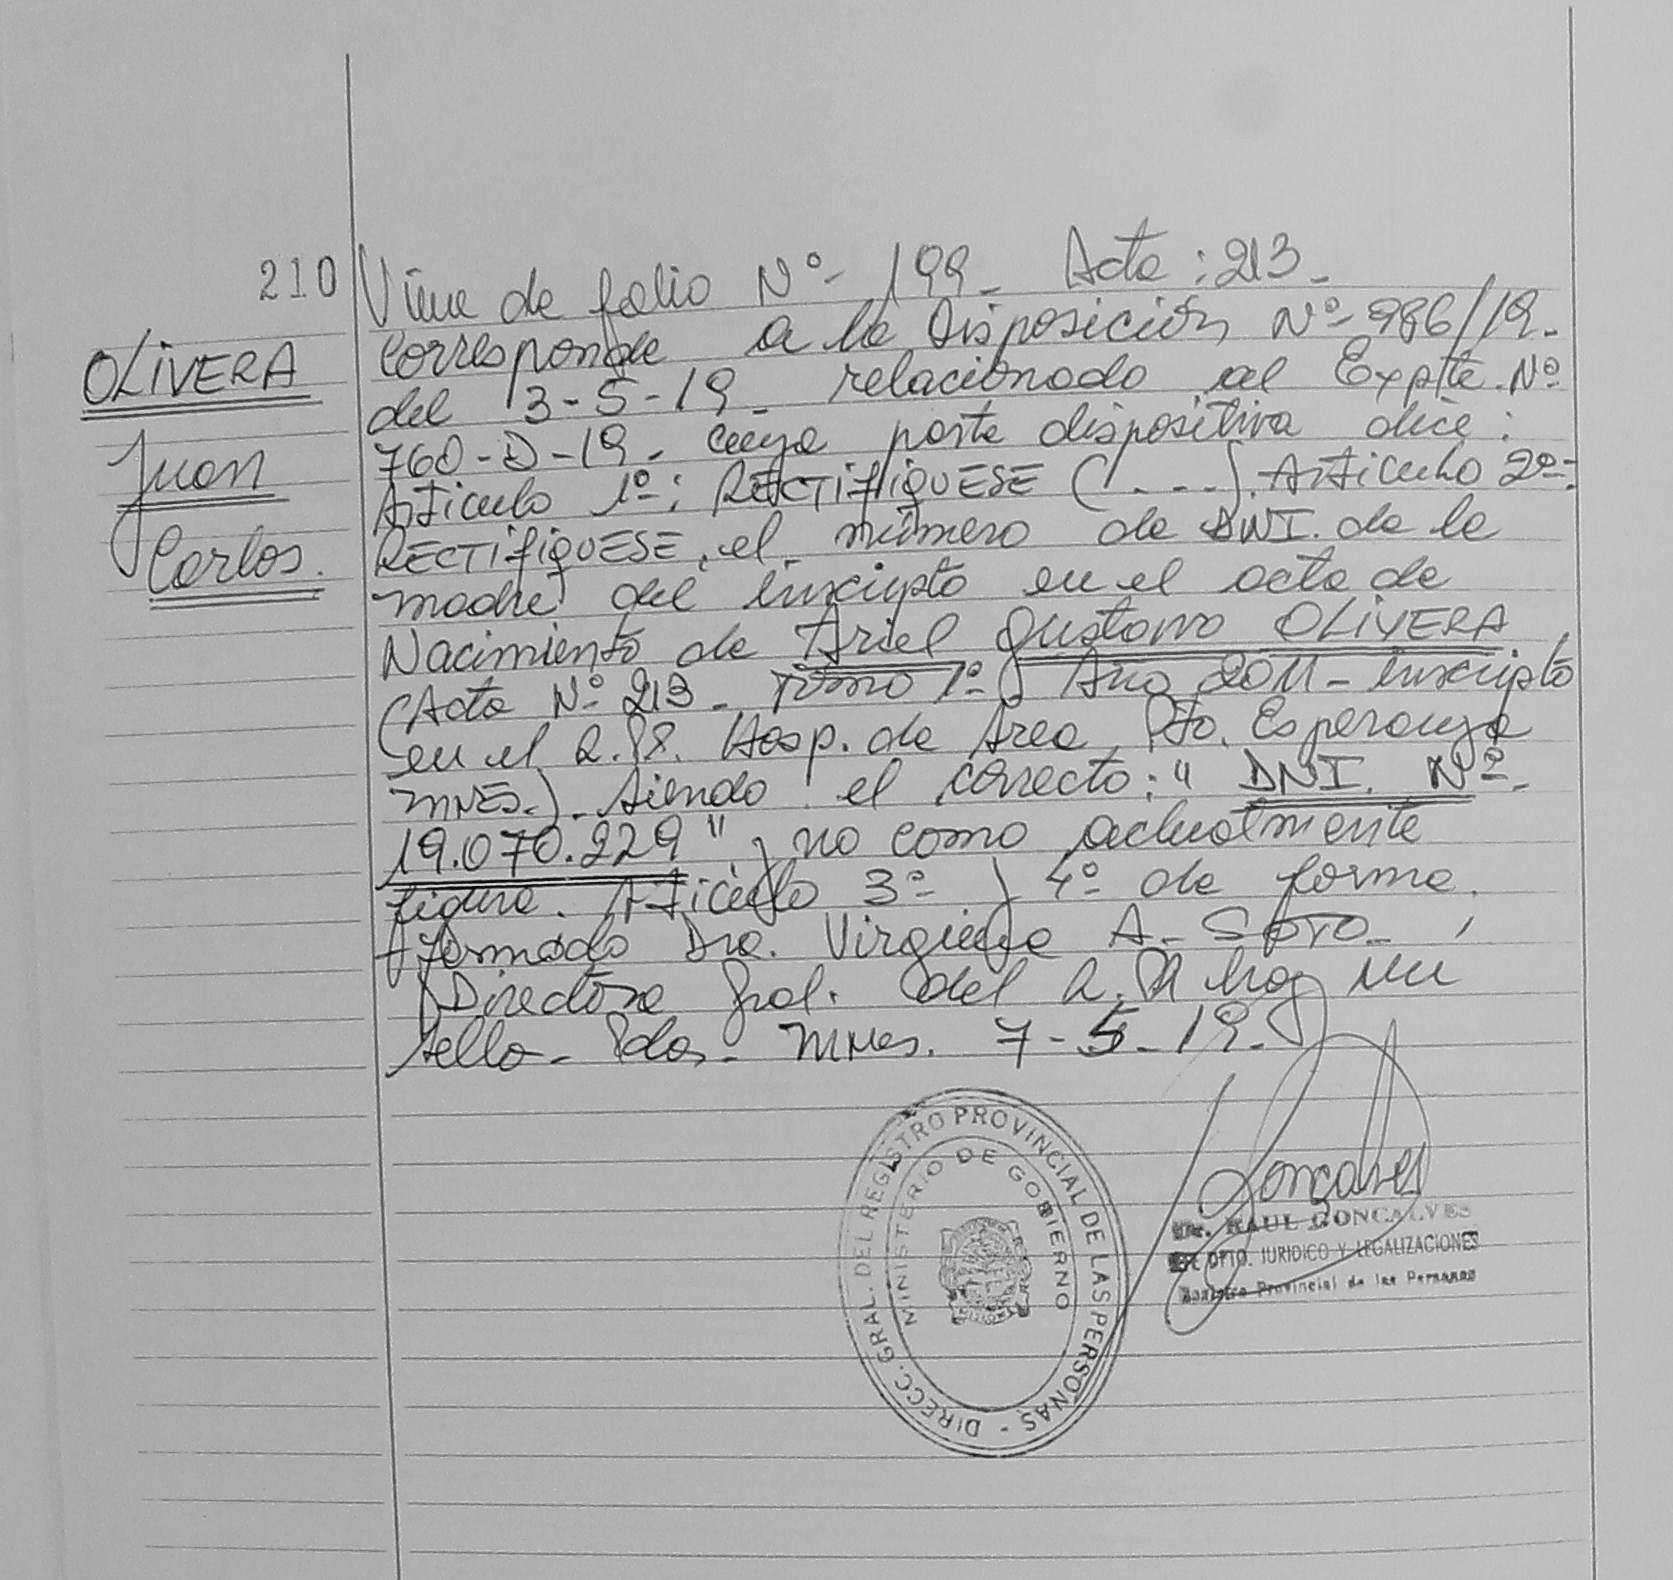 210
Viene de folio Nº- 199- Acta: 213-
OLIVERA
Juan
Carlos.
Corresponde a la Disposición Nº- 986/19-
del 3-5-19- relacionado al Expte. Nº
760-D-19- cuya parte dispositiva dice:
Artículo 1º-: RECTIFIQUESE (----). Artículo 2º-:
RECTIFIQUESE, el número de DNI. de la
madre del inscripto en el acta de
Nacimiento de Ariel Gustavo OLIVERA
(Acta Nº- 213- Tomo 1º- Año 2011- inscripto
en el Hosp. de Area Pto. Esperanza
MNES.)- siendo el correcto: " DNI. Nº-
19.070.229" y no como actualmente
figura. Artículo 3º- y 4º- de forma.
firmado Dra. Virginia A- SOTO-
Directora Gral. del R.P. hay un
sello- Pdas- Mnes. 7-5-19-
DIRECC. GRAL. DEL REGISTRO PROVINCIAL DE LAS PERSONAS -
MINISTERIO DE GOBIERNO
Goncalves
RAUL GONCALVES
DPTO. JURIDICO Y LEGALIZACIONES
Registro Provincial de las Personas